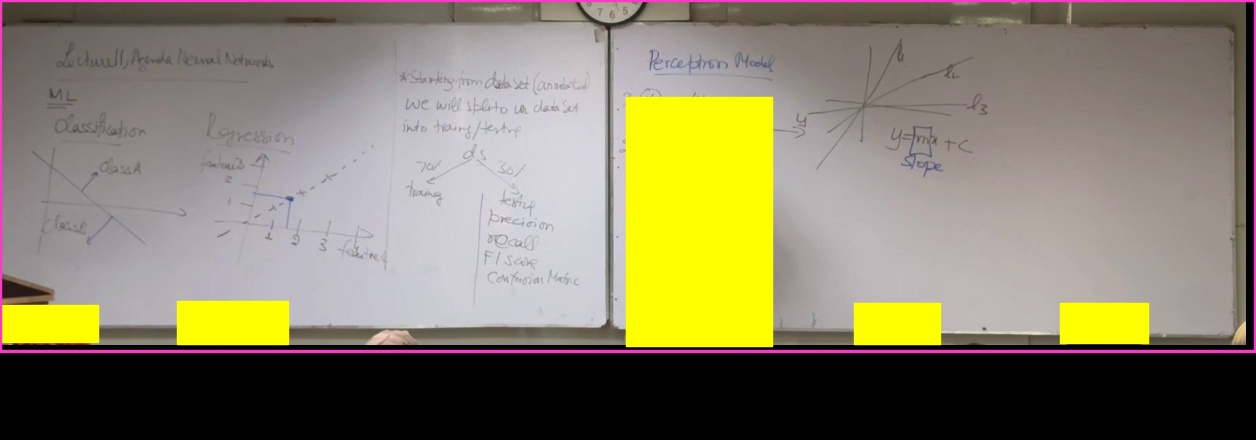 Lecture11, Agenda Neural Networks
ML
Classification
class A
class B
Regression
feature B
2
1
1 2 3
feature A
*Starting from dataset (annotated)
we will split to us data set
into traing/testing
ds
70/ 30/
traing
testing
precision
recall
F1 score
Confusion Matric
Perceptron Model
y
l1
l2
l3
y=mx+c
slope
7 6 5